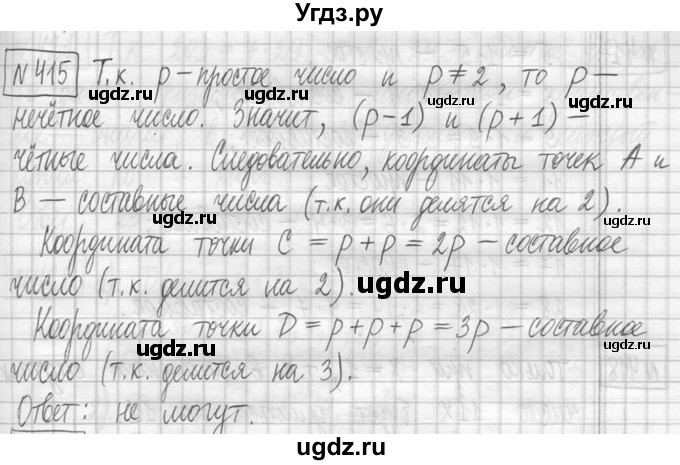 Угдз.ру
№415 Т.к. p – простое число и p ≠ 2, то p –
нечётное число. Значит, (p-1) и (p+1) –
чётные числа. Следовательно, координаты точек A и
B – составные числа (т.к. они делятся на 2).
Координата точки C = p + p = 2p – составное
число (т.к. делится на 2).
Координата точки D = p + p + p = 3p – составное
число (т.к. делится на 3).
Ответ: не могут.
ugdz.ru
ugdz.ru
ugdz.ru
ugdz.ru
ugdz.ru
ugdz.ru
ugdz.ru
ugdz.ru
ugdz.ru
ugdz.ru
ugdz.ru
ugdz.ru